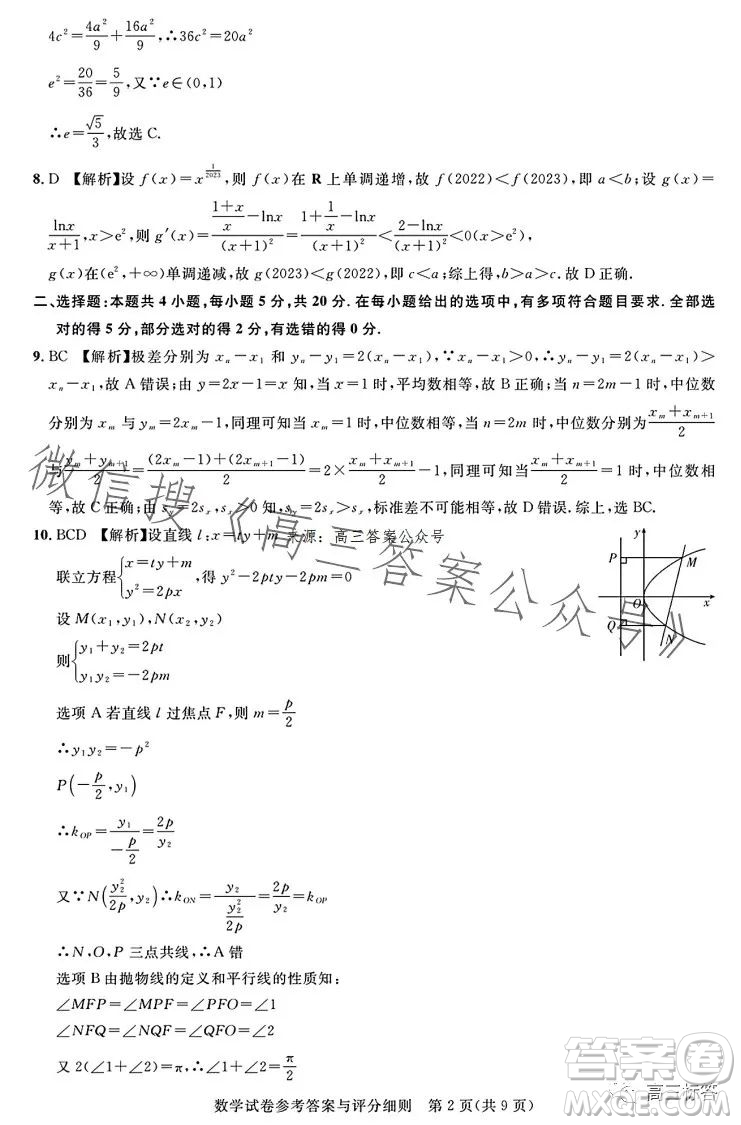 4c²=4a²/9+16a²/9,∴36c²=20a²
e²=20/36=5/9,又∵e∈(0,1)
∴e=√5/3,故选 C.
8. D 【解析】设 f(x)=x^(1/2023),则 f(x)在 R 上单调递增,故 f(2022)<f(2023),即 a<b;设 g(x)=
lnx/(x+1),x>e²,则 g′(x)=((1+x)/x-lnx)/(x+1)²=(1+1/x-lnx)/(x+1)²<(2-lnx)/(x+1)²<0(x>e²),
g(x)在(e²,+∞)单调递减,故 g(2023)<g(2022),即 c<a;综上得,b>a>c.故 D 正确.
二、选择题:本题共 4 小题,每小题 5 分,共 20 分.在每小题给出的选项中,有多项符合题目要求.全部选
对的得 5 分,部分选对的得 2 分,有选错的得 0 分.
9. BC 【解析】极差分别为 xₙ-x₁ 和 yₙ-y₁=2(xₙ-x₁),∵xₙ-x₁>0,∴yₙ-y₁=2(xₙ-x₁)>
xₙ-x₁,故 A 错误;由 y=2x-1=x 知,当 x=1 时,平均数相等,故 B 正确;当 n=2m-1 时,中位数
分别为 xₘ 与 yₘ=2xₘ-1,同理可知当 xₘ=1 时,中位数相等,当 n=2m 时,中位数分别为(xₘ+xₘ₊₁)/2
与(yₘ+yₘ₊₁)/2=((2xₘ-1)+(2xₘ₊₁-1))/2=2×(xₘ+xₘ₊₁)/2-1,同理可知当(xₘ+xₘ₊₁)/2=1 时,中位数相等,
故 C 正确;由 s_y=2s_x,s_x>0,故 s_y=2s_x>s_x,标准差不可能相等,故 D 错误.综上,选 BC.
10. BCD 【解析】设直线 l:x=ty+m 来源:高三答案公众号
联立方程{x=ty+m
y²=2px,得 y²-2pty-2pm=0
设 M(x₁,y₁),N(x₂,y₂)
则{y₁+y₂=2pt
y₁y₂=-2pm
选项 A 若直线 l 过焦点 F,则 m=p/2
∴y₁y₂=-p²
P(-p/2,y₁)
∴k_OP=y₁/(-p/2)=2p/y₂
又∵N(y₂²/2p,y₂)∴k_ON=y₂/(y₂²/2p)=2p/y₂=k_OP
∴N、O、P 三点共线,∴A 错
选项 B 由抛物线的定义和平行线的性质知:
∠MFP=∠MPF=∠PFO=∠1
∠NFQ=∠NQF=∠QFO=∠2
又 2(∠1+∠2)=π,∴∠1+∠2=π/2
y
P
M
O
x
Q
N
微信搜《高三答案公众号》
数学试卷参考答案与评分细则 第 2 页(共 9 页)
高三标答
答案圈
MXQE.COM